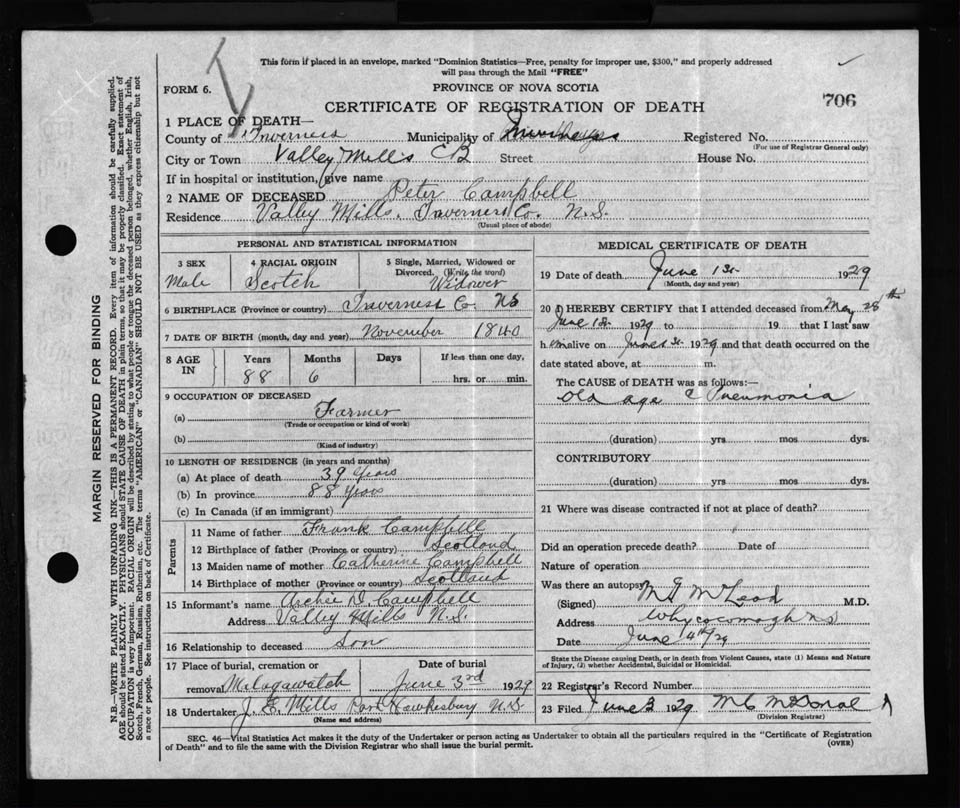 This form if placed in an envelope, marked "Dominion Statistics—Free, penalty for improper use, $300," and properly addressed
will pass through the Mail "FREE"
FORM 6.
PROVINCE OF NOVA SCOTIA
706
CERTIFICATE OF REGISTRATION OF DEATH
1 PLACE OF DEATH—
County of Inverness Municipality of Registered No.
(For use of Registrar General only)
City or Town Valley Mills CB Street House No.
If in hospital or institution, give name
2 NAME OF DECEASED Peter Campbell
Residence Valley Mills. Inverness Co. N.S.
(Usual place of abode)
PERSONAL AND STATISTICAL INFORMATION
3 SEX
Male
4 RACIAL ORIGIN
Scotch
5 Single, Married, Widowed or
Divorced. (Write the word)
Widower
6 BIRTHPLACE (Province or country) Inverness Co. NS
7 DATE OF BIRTH (month, day and year) November 1840
8 AGE
IN
Years
88
Months
6
Days
If less than one day,
hrs. or min.
9 OCCUPATION OF DECEASED
(a) Farmer
(Trade or occupation or kind of work)
(b)
(Kind of industry)
10 LENGTH OF RESIDENCE (in years and months)
(a) At place of death 39 Years
(b) In province 88 Years
(c) In Canada (if an immigrant)
Parents
11 Name of father Frank Campbell
12 Birthplace of father (Province or country) Scotland
13 Maiden name of mother Catherine Campbell
14 Birthplace of mother (Province or country) Scotland
15 Informant's name Archie D. Campbell
Address Valley Mills N.S.
16 Relationship to deceased Son
17 Place of burial, cremation or
removal Malagawatch
Date of burial
June 3rd 1929
18 Undertaker J. E. Mills Port Hawkesbury N.S.
(Name and address)
MEDICAL CERTIFICATE OF DEATH
19 Date of death June 1st 1929
(Month, day and year)
20 I HEREBY CERTIFY that I attended deceased from May 28th
June 1st 1929 to 19 that I last saw
h im alive on 1929 and that death occurred on the
date stated above, at m.
The CAUSE of DEATH was as follows:—
Old age c Pneumonia
(duration) yrs mos dys.
CONTRIBUTORY
(duration) yrs mos dys.
21 Where was disease contracted if not at place of death?
Did an operation precede death? Date of
Nature of operation
Was there an autopsy
(Signed) McLeod M.D.
Address Whycocomagh NS
Date June 4th 29
State the Disease causing Death, or in death from Violent Causes, state (1) Means and Nature
of Injury, (2) whether Accidental, Suicidal or Homicidal.
22 Registrar's Record Number
23 Filed June 3 1929 M C McDonald
(Division Registrar)
SEC. 46—Vital Statistics Act makes it the duty of the Undertaker or person acting as Undertaker to obtain all the particulars required in the "Certificate of Registration
of Death" and to file the same with the Division Registrar who shall issue the burial permit.
(OVER)
MARGIN RESERVED FOR BINDING
N.B.—WRITE PLAINLY WITH UNFADING INK—THIS IS A PERMANENT RECORD. Every item of information should be carefully supplied.
AGE should be stated EXACTLY. PHYSICIANS should STATE CAUSE OF DEATH in plain terms, so that it may be properly classified. Exact statement of
OCCUPATION is very important. RACIAL ORIGIN will be described by stating to what people or tongue the deceased person belonged, whether English, Irish,
Scotch, French, German, Russian, Ruthenian, etc. The terms "AMERICAN" or "CANADIAN" SHOULD NOT BE USED as they express citizenship but not
a race or people. See instructions on back of Certificate.